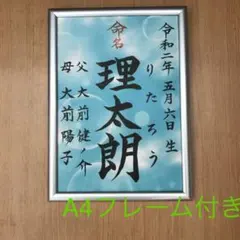 命名
令和二年 五月六日 生
りたろう
理太朗
父 大前健ノ介
母 大前陽子
A4フレーム付き